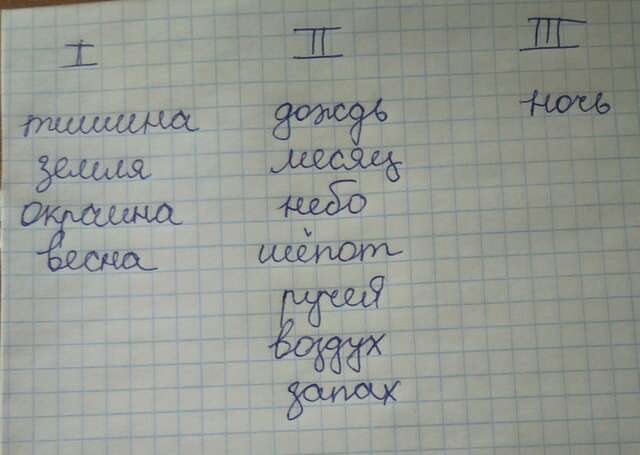 I II III
тишина дождь ночь
земля месяц
окраина небо
весна шёпот
ручей
воздух
запах